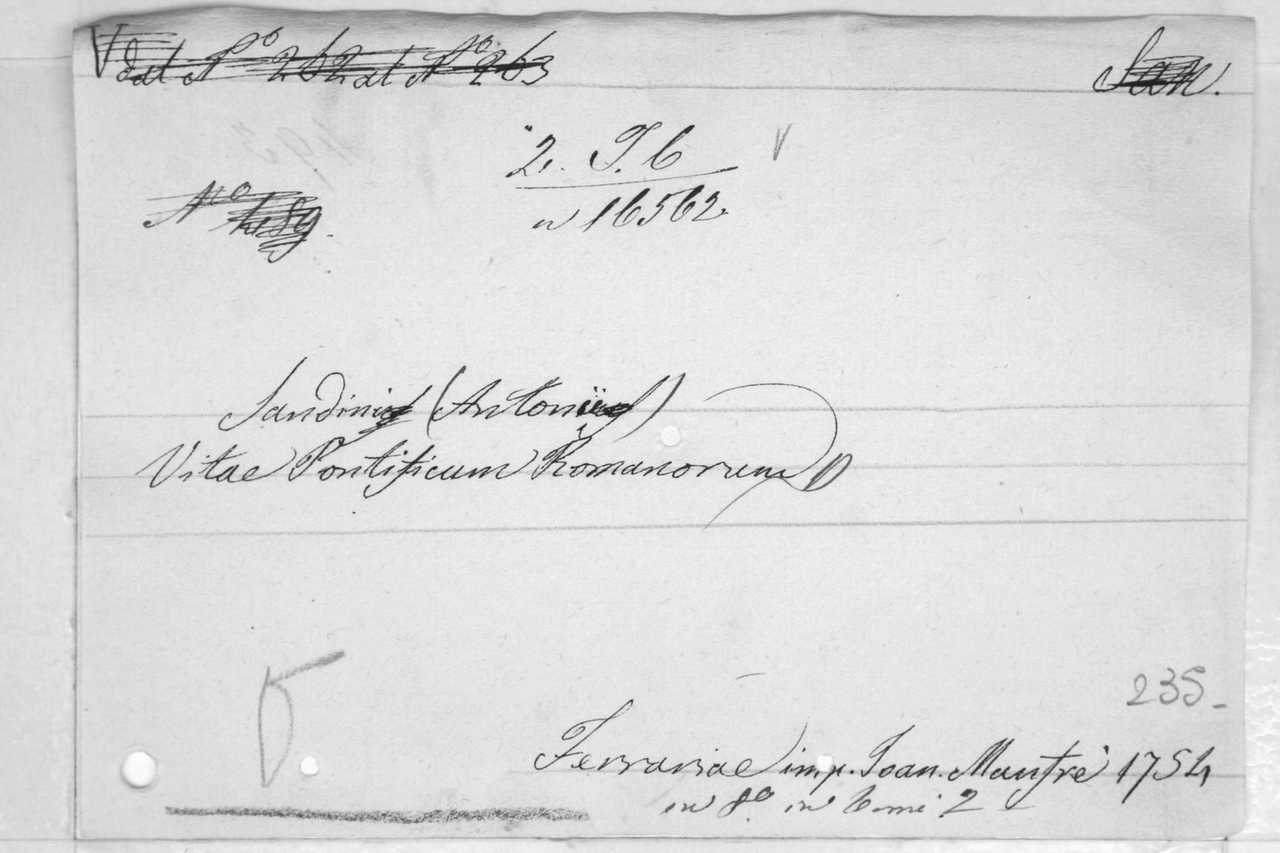 dal Nº 262 al Nº 263
San.
2. T. 6
n 16562
Nº
Sandini (Antonii)
Vitae Pontificum Romanorum
235
Ferrariae imp. Joan. Manfrè 1754
in 8º in tomi 2